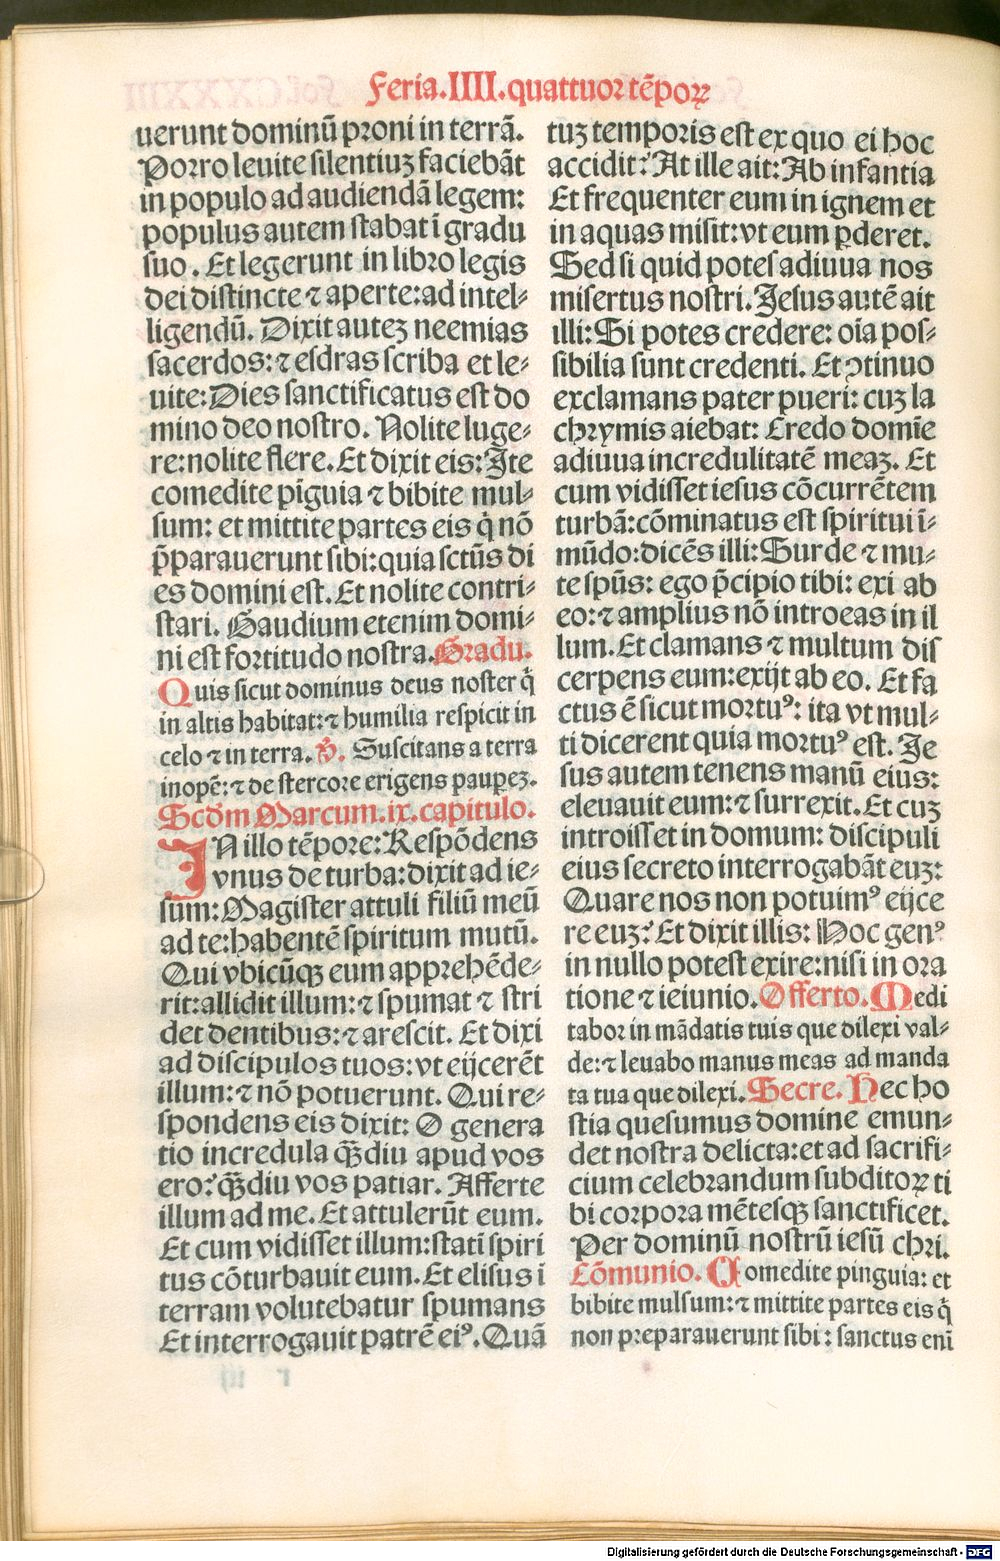 Feria.IIII.quattuor tẽpoꝝ
uerunt dominũ proni in terrã.
Porro leuite silentiuꝫ faciebãt
in populo ad audiendã legem:
populus autem stabat ĩ gradu
suo. Et legerunt in libro legis
dei distincte ⁊ aperte: ad intel⸗
ligendũ. Dixit auteꝫ neemias
sacerdos: ⁊ esdras scriba et le⸗
uite: Dies sanctificatus est do
mino deo nostro. Nolite luge⸗
re: nolite flere. Et dixit eis: Ite
comedite pĩguia ⁊ bibite mul⸗
sum: et mittite partes eis q̇ nõ
p̃parauerunt sibi: quia sctũs di
es domini est. Et nolite contri⸗
stari. Gaudium etenim domi⸗
ni est fortitudo nostra. Gradu.
Quis sicut dominus deus noster q̇
in altis habitat: ⁊ humilia respicit in
celo ⁊ in terra. ℣. Suscitans a terra
inopẽ: ⁊ de stercore erigens pauꝑeꝫ.
Scḋm Marcum. ix. capitulo.
IN illo tẽpore: Respõdens
vnus de turba: dixit ad ie⸗
sum: Magister attuli filiũ meũ
ad te: habentẽ spiritum mutũ.
Qui vbicũqꝫ eum apprehẽde⸗
rit: allidit illum: ⁊ spumat ⁊ stri
det dentibus: ⁊ arescit. Et dixi
ad discipulos tuos: vt eijcerẽt
illum: ⁊ nõ potuerunt. Qui re⸗
spondens eis dixit: O genera
tio incredula qꝫ̃diu apud vos
ero? qꝫ̃diu vos patiar. Afferte
illum ad me. Et attulerũt eum.
Et cum vidisset illum: statĩ spiri
tus cõturbauit eum. Et elisus ĩ
terram volutebatur spumans
Et interrogauit patrẽ eiꝰ. Quã
tuꝫ temporis est ex quo ei hoc
accidit? At ille ait: Ab infantia
Et frequenter eum in ignem et
in aquas misit: vt eum ꝑderet.
Sed si quid potes adiuua nos
misertus nostri. Jesus autẽ ait
illi: Si potes credere: oĩa pos⸗
sibilia sunt credenti. Et ꝯtinuo
exclamans pater pueri: cuꝫ la
chrymis aiebat: Credo domĩe
adiuua incredulitatẽ meaꝫ. Et
cum vidisset iesus cõcurrẽtem
turbã: cõminatus est spiritui ĩ⸗
mũdo: dicẽs illi: Surde ⁊ mu⸗
te spũs: ego p̃cipio tibi: exi ab
eo: ⁊ amplius nõ introeas in il
lum. Et clamans ⁊ multum dis
cerpens eum: exijt ab eo. Et fa
ctus ẽ sicut mortuꝰ: ita vt mul⸗
ti dicerent quia mortuꝰ est. Je
sus autem tenens manũ eius:
eleuauit eum: ⁊ surrexit. Et cuꝫ
introisset in domum: discipuli
eius secreto interrogabãt euꝫ:
Quare nos non potuimꝰ eijce
re euꝫ? Et dixit illis: Hoc genꝰ
in nullo potest exire: nisi in ora
tione ⁊ ieiunio. Offerto. Medi
tabor in mãdatis tuis que dilexi val⸗
de: ⁊ leuabo manus meas ad manda
ta tua que dilexi. Secre. Hec ho
stia quesumus domine emun⸗
det nostra delicta: et ad sacrifi⸗
cium celebrandum subditoꝝ ti
bi corpora mẽtesqꝫ sanctificet.
Per dominũ nostrũ iesũ chri.
Cõmunio. Comedite pinguia: et
bibite mulsum: ⁊ mittite partes eis q̇
non preparauerunt sibi: sanctus enĩ
Digitalisierung gefördert durch die Deutsche Forschungsgemeinschaft - DFG